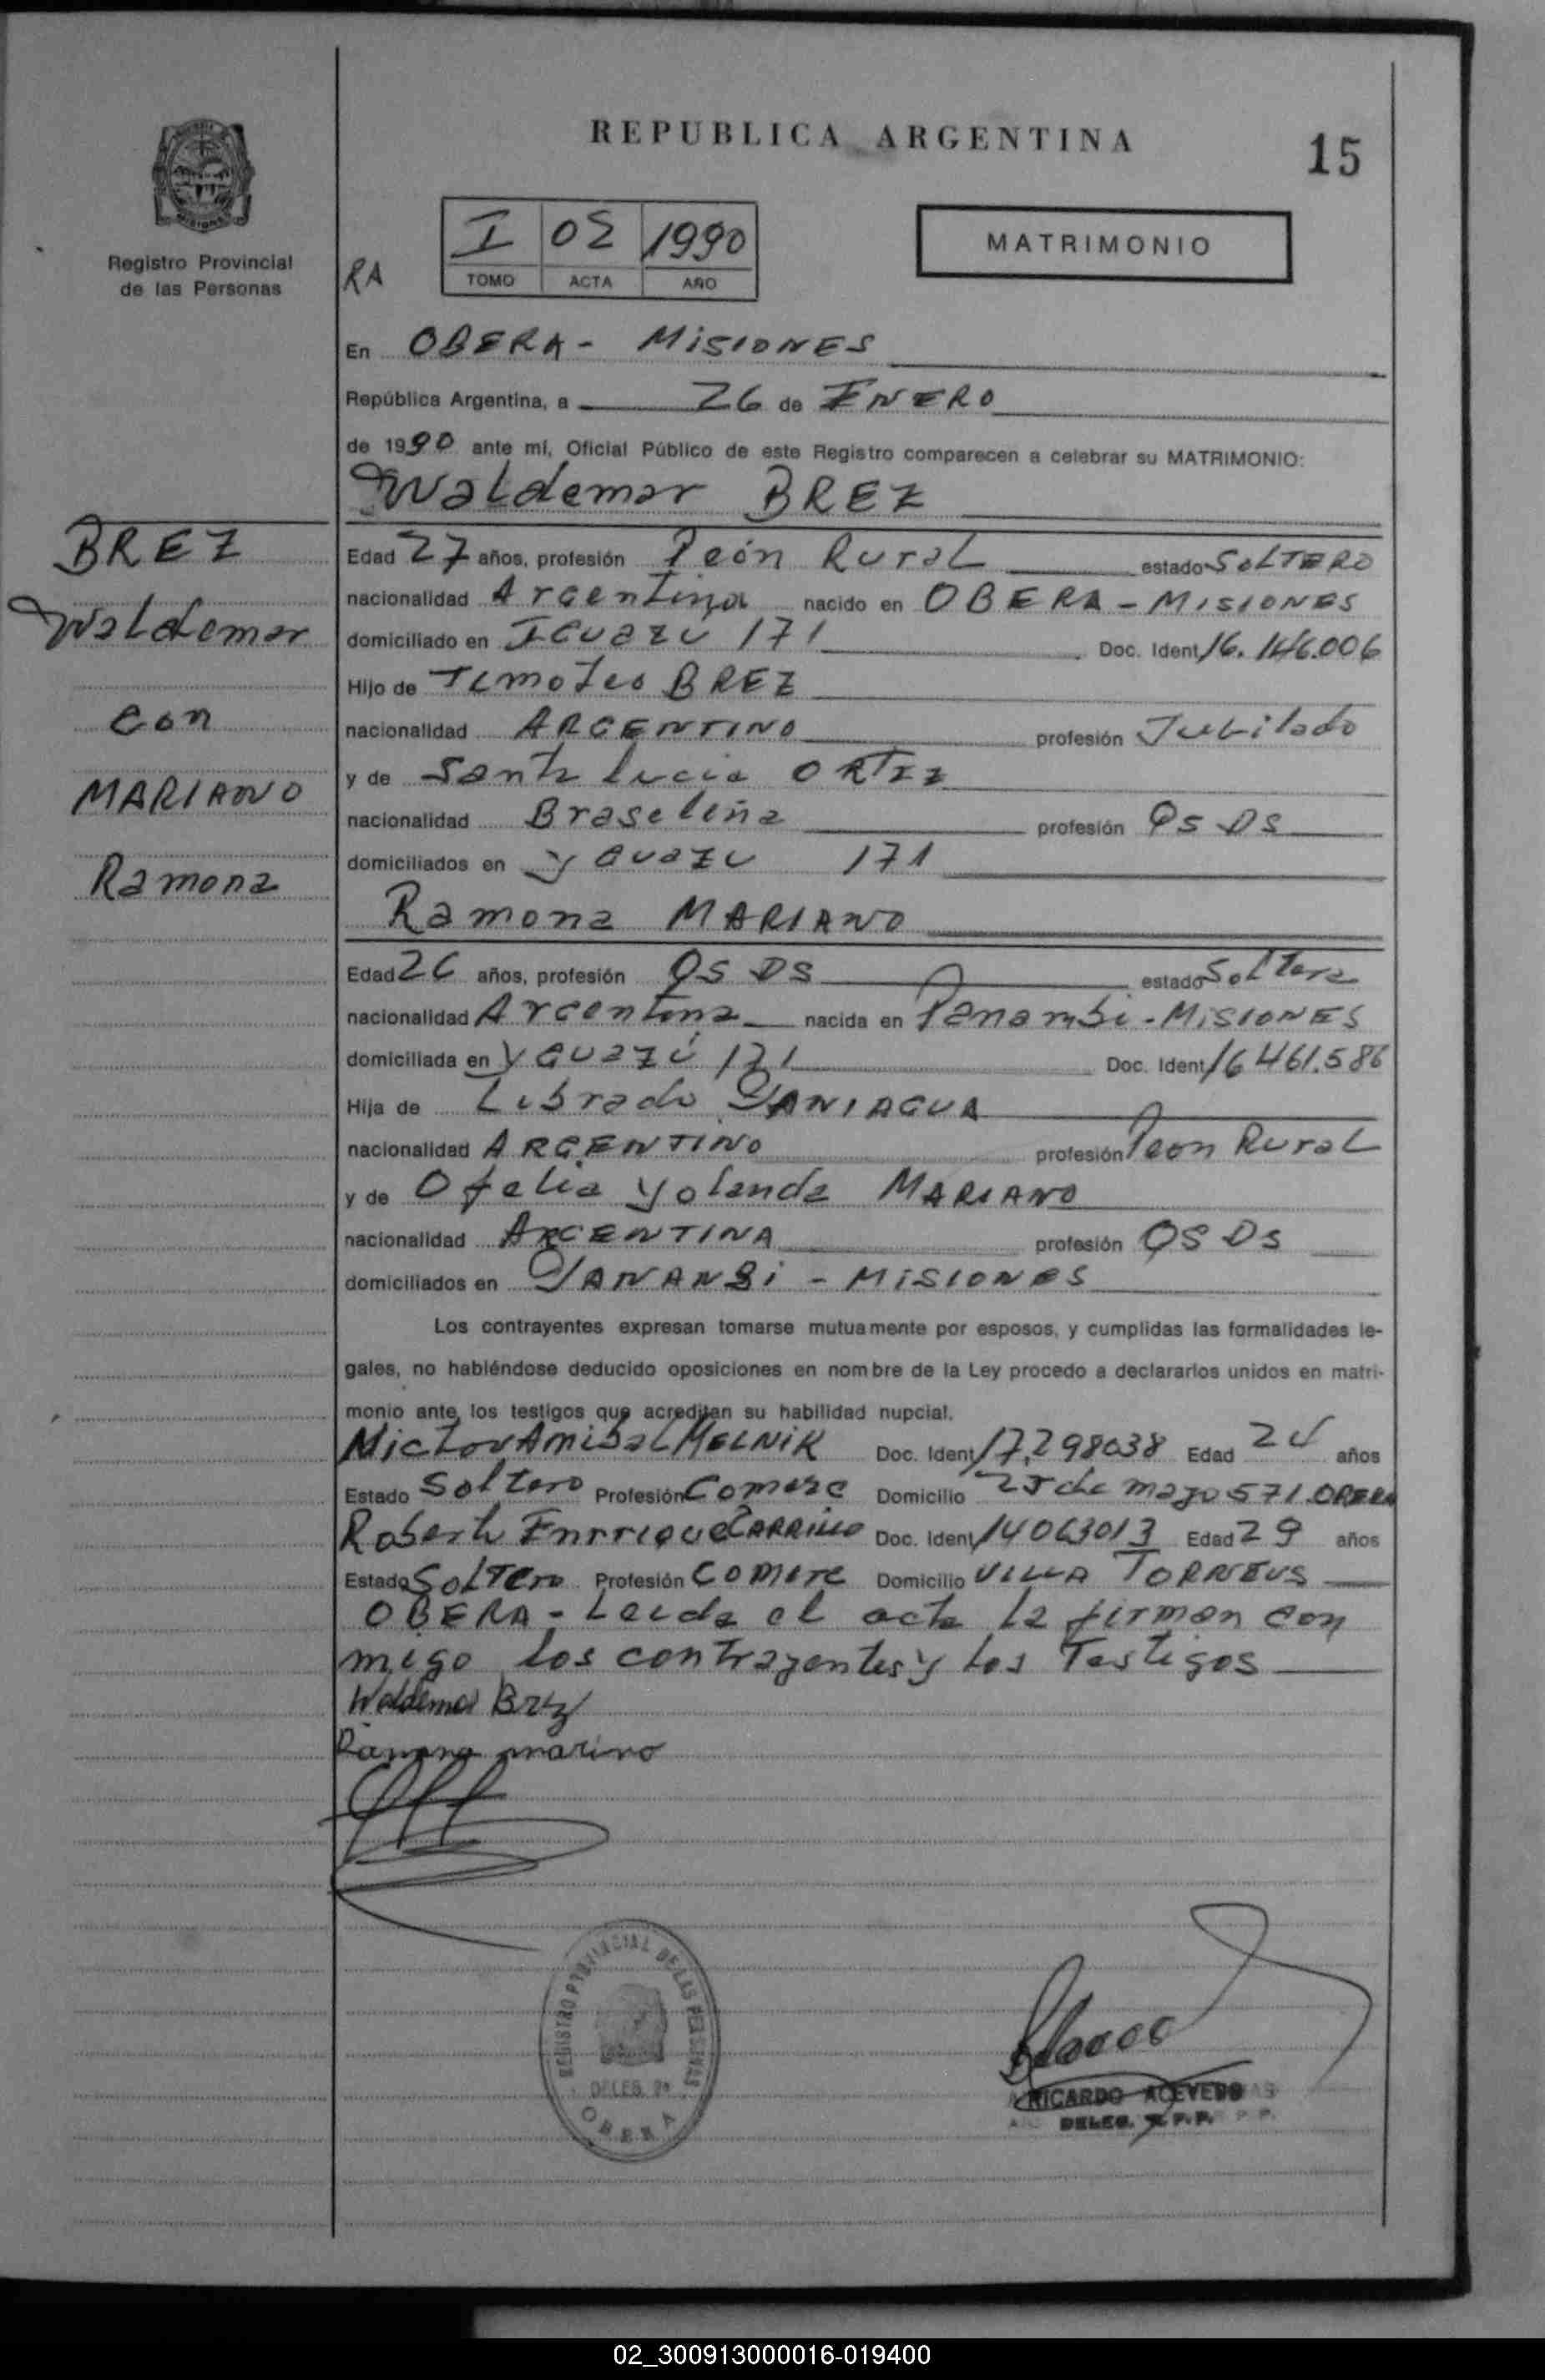 REPUBLICA ARGENTINA
15
Registro Provincial
de las Personas
RA
I 05 1990
TOMO ACTA AÑO
MATRIMONIO
En OBERA - MiSIONES
República Argentina, a 26 de ENERO
de 1990 ante mí, Oficial Público de este Registro comparecen a celebrar su MATRIMONIO:
Waldemar BREZ
BREZ
Waldemar
con
MARIANO
Ramona
Edad 27 años, profesión Peón Rural estado SOLTERO
nacionalidad Argentina nacido en OBERA - MISIONES
domiciliado en IGuazú 171 Doc. Ident 16.146.006
Hijo de Timoteo BREZ
nacionalidad ARGENTINO profesión Jubilado
y de Santa lucia ORTIZ
nacionalidad Brasileña profesión QS DS
domiciliados en yguazu 171
Ramona MARIANO
Edad 26 años, profesión QS DS estado Soltera
nacionalidad Argentina nacida en Panambi - MISIONES
domiciliada en YGuazú 171 Doc. Ident 16461.586
Hija de Librado PANIAGUA
nacionalidad ARGENTINO profesión Peon Rural
y de Ofelia yolanda MARIANO
nacionalidad ARGENTINA profesión QS DS
domiciliados en PANANBi - MiSIONES
Los contrayentes expresan tomarse mutuamente por esposos, y cumplidas las formalidades le-
gales, no habiéndose deducido oposiciones en nombre de la Ley procedo a declararlos unidos en matri-
monio ante los testigos que acreditan su habilidad nupcial.
MELNiK Doc. Ident 17.298038 Edad 24 años
Estado Soltero Profesión Comerc Domicilio 25 de mayo 571. OBERA
Roberto Enrrique CARRILLO Doc. Ident 14063013 Edad 29 años
Estado SOLTero Profesión Comerc Domicilio VILLA TORNEUS
OBERA - Leida el acta la firman con
migo los contrayentes y los Testigos
Waldemar Brez
Ramona marino
REGISTRO PROVINCIAL DE LAS PERSONAS
DELEG.
OBERA
RICARDO ACEVEDO
DELEG. R.P.P.
02_300913000016-019400